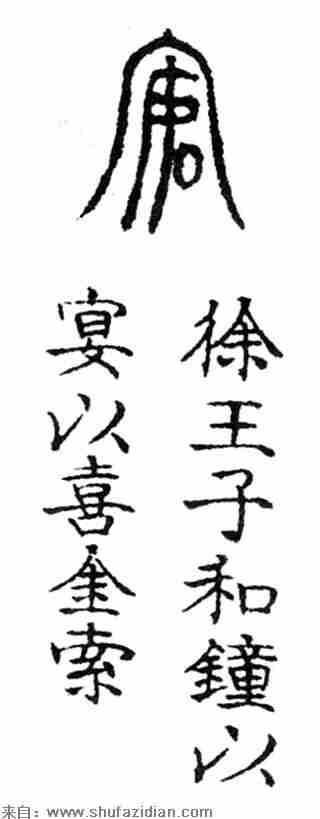 徐王子和鐘以
宴以喜金索
来自：www.shufazidian.com